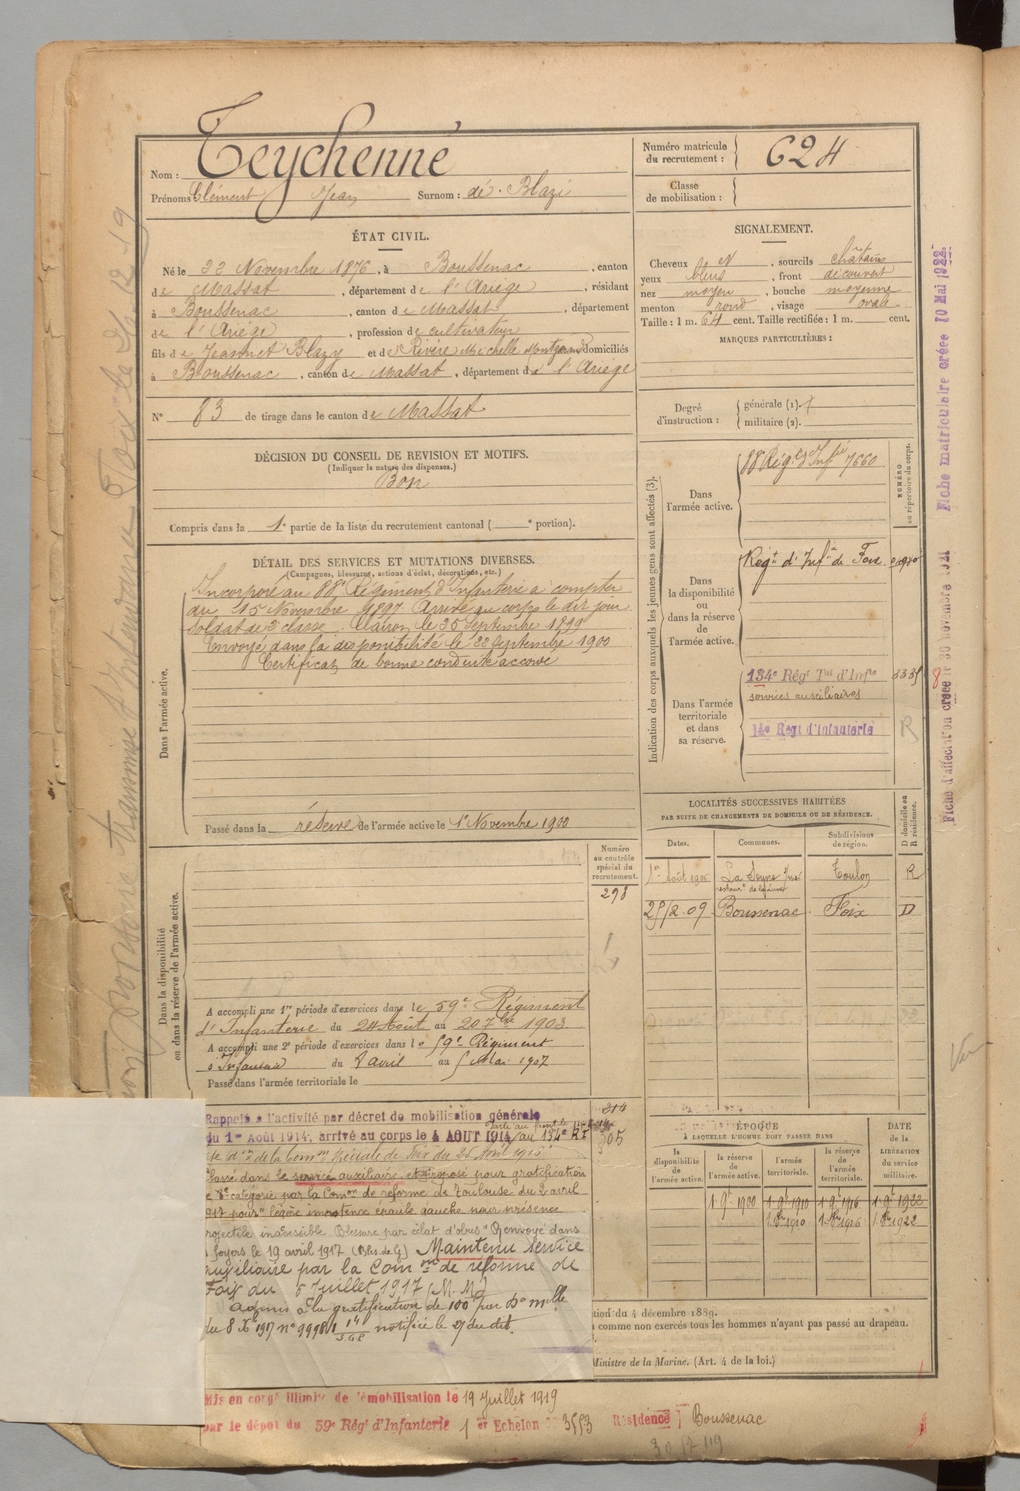 Nom : Teychenné
Prénoms Clément Jean Surnom : dé Blazi
Numéro matricule du recrutement : 624
Classe de mobilisation :
ÉTAT CIVIL.
Né le 22 Novembre 1876, à Boussenac, canton
de Massat, département de l'Ariège, résidant
à Boussenac, canton de Massat, département
de l'Ariège, profession de cultivateur
fils de Jeannet Blazy et de Rivère Michelle domiciliés
à Boussenac, canton de Massat, département de l'Ariège
N° 83 de tirage dans le canton de Massat
SIGNALEMENT.
Cheveux N, sourcils châtains
yeux bleus, front découvert
nez moyen, bouche moyenne
menton rond, visage ovale
Taille : 1 m. 64 cent. Taille rectifiée : 1 m. cent.
MARQUES PARTICULIÈRES :
Degré d'instruction : générale (1).
militaire (2).
DÉCISION DU CONSEIL DE REVISION ET MOTIFS.
(Indiquer la nature des dispenses.)
Bon
Compris dans la 1e partie de la liste du recrutement cantonal ( e portion).
DÉTAIL DES SERVICES ET MUTATIONS DIVERSES.
(Campagnes, blessures, actions d'éclat, décorations, etc.)
Dans l'armée active.
Incorporé au 88e Régiment d'Infanterie à compter
du 15 Novembre 1897 Arrivé au corps le dit jour
soldat de 2e classe. Clairon le 25 Septembre 1899
Envoyé dans la disponibilité le 22 Septembre 1900
Certificat de bonne conduite accordé
Passé dans la réserve de l'armée active le 1er Novembre 1900
Indication des corps auxquels les jeunes gens sont affectés (3).
NUMÉRO au répertoire du corps.
Dans l'armée active.
88 Régt d'Infie 7660
Dans la disponibilité ou dans la réserve de l'armée active.
Régt d'Infie de Foix
Dans l'armée territoriale et dans sa réserve.
134e Régt Tal d'Infie
services auxiliaires
14e Régt d'Infanterie
R
LOCALITÉS SUCCESSIVES HABITÉES
PAR SUITE DE CHANGEMENTS DE DOMICILE OU DE RÉSIDENCE.
Dates. Communes. Subdivisions de région. D domicile ou R résidence.
1er Août La Seyne Toulon R
25/2.09 Boussenac Foix D
Dans la disponibilité ou dans la réserve de l'armée active.
Numéro au contrôle spécial du recrutement.
298
A accompli une 1re période d'exercices dans le 59e Régiment
d'Infanterie du 24 Août au 20 7bre 1903
A accompli une 2e période d'exercices dans le 59e Régiment
d'Infanterie du 8 avril au 5 Mai 1907
Passé dans l'armée territoriale le
Rappelé à l'activité par décret de mobilisation générale
du 1er Août 1914, arrivé au corps le 4 AOUT 1914 au 134e RT
505
de la Comon spéciale de Foix du 26 Avril
Classé dans le service auxiliaire et proposé pour gratification
catégorie par la Comon de réforme de Toulouse du 2 avril
1917 pour "légère impotence épaule gauche présence
projectile inaccessible Blessure par éclat d'obus" Renvoyé dans
foyers le 19 avril 1917 (Bles. de G) Maintenu service
auxiliaire par la Comon de réforme de
Foix du 5 Juillet 1917 (M. M.)
Admis à la gratification de 100f
du 8 Xbre 1917 n° 9998 notifiée le 27 du dit.
ÉPOQUE
À LAQUELLE L'HOMME DOIT PASSER DANS
DATE de la LIBÉRATION du service militaire.
la disponibilité de l'armée active. la réserve de l'armée active. l'armée territoriale. la réserve de l'armée territoriale.
1 9bre 1900 1 9bre 1910 1 9bre 1916 1 9bre 1922
1 8bre 1910 1 8bre 1916 1 8bre 1922
du 4 décembre 1889.
comme non exercés tous les hommes n'ayant pas passé au drapeau.
Ministre de la Marine. (Art. 4 de la loi.)
Mis en congé illimité de démobilisation le 19 Juillet 1919
par le dépôt du 59e Régt d'Infanterie 1er Echelon 3553 Résidence Boussenac
Fiche d'affectation créée le 30 novembre 1921
Fiche matriculaire créée 10 Mai 1922.